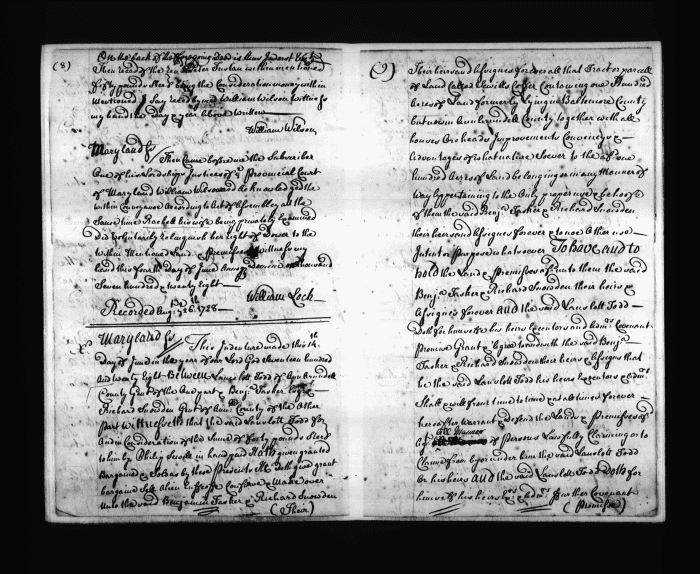 (8)
On the back of the foregoing deed is thus Indorst
Then rec'd of the
fifty pounds Sterl being the Consideration money within
Mentioned I Say rec'd by me William Wilson Witness
my hand the day & year above written
William Wilson
Maryland ss
Then Came before me the Subscriber
One of his Lordships Justices of a Provincial Court
of Maryland William Wilson and Acknowledged the
within Conveyance According to Act of Assembly at the
Same time Rachell his wife being privately Examined
did Voluntarily relinquish her right of Dower to the
within Mentioned Land & premises Witness my
hand this fourth day of June Anno Domini One thousand
Seven hundred & twenty Eight
William Lock
Recorded Aug. 26th 1728
Maryland ss
This Indenture made this 14th
day of June in the year of our Lord God Seventeen hundred
and twenty Eight Between Lanslott Todd of Ann Arundell
County Gent of the One part & Benj. Tasker Esqr &
Richard Snowden Gent of County of the Other
part Witnesseth that the said Lanslott Todd for
and in Consideration of the Sume of forty pounds Sterl
to him by in hand paid Hath given granted
Bargained & Sold & by these Presents doth give grant
bargain Sell Alien Enfeoffe Confirm & Make over
Unto the said Benjamin Tasker & Richard Snowden
(Their)
(9)
Their heirs and Assignes forever all that Tract or parcell
of Land Called Containing one Hundred
Acres of Land formerly Lying in Baltemore County
but now in Ann Arundell County together with all
houses Orchards Improvements Conveniencys &
advantages of what nature Soever to the
hundred Acres of Land belonging or in any Manner of
way appertaining to the Only proper use & behoofe
of them the said Benj. Tasker & Richard Snowden
their heirs and Assignes forever & to no other use
Intent or purpose whatsoever To have and to
hold the Land & Premisses unto them the said
Benj. Tasker & Richard Snowden their heirs &
Assignes forever And the said Lanslott Todd
Doth for himselfe his heirs Executors and Adm. Covenant
Promise Grant & Agree to and with the said Benj.
Tasker & Richard Snowden their heirs & Assignes that
he the said Lanslott Todd his heirs Executors & Adm.
Shall & will from time to time & at all times forever
hereafter Warrant & Defend the Land & Premisses
All Manner
of Persons Lawfully Claiming or to
Claime from by or under him the said Lanslott Todd
or his heirs And the said Lanslott Todd Doth for
himselfe his heirs & Adm. further Covenant
(Promise)